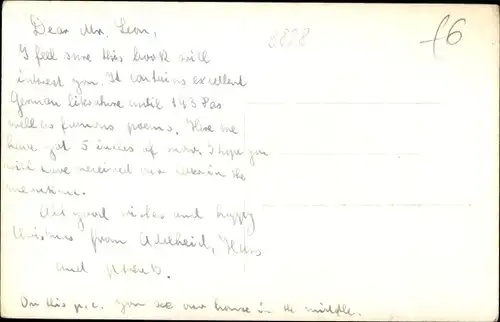 Dear Mr. Leon,
3828
f6
I feel sure this book will
interest you. It contains excellent
German literature until 1938 as
well as famous poems. Here we
have got 5 inches of snow. I hope you
will have received our letter in the
meantime.
All good wishes and happy
Christmas from Adelheid, Hans
and
On this p.c. you see our house in the middle.